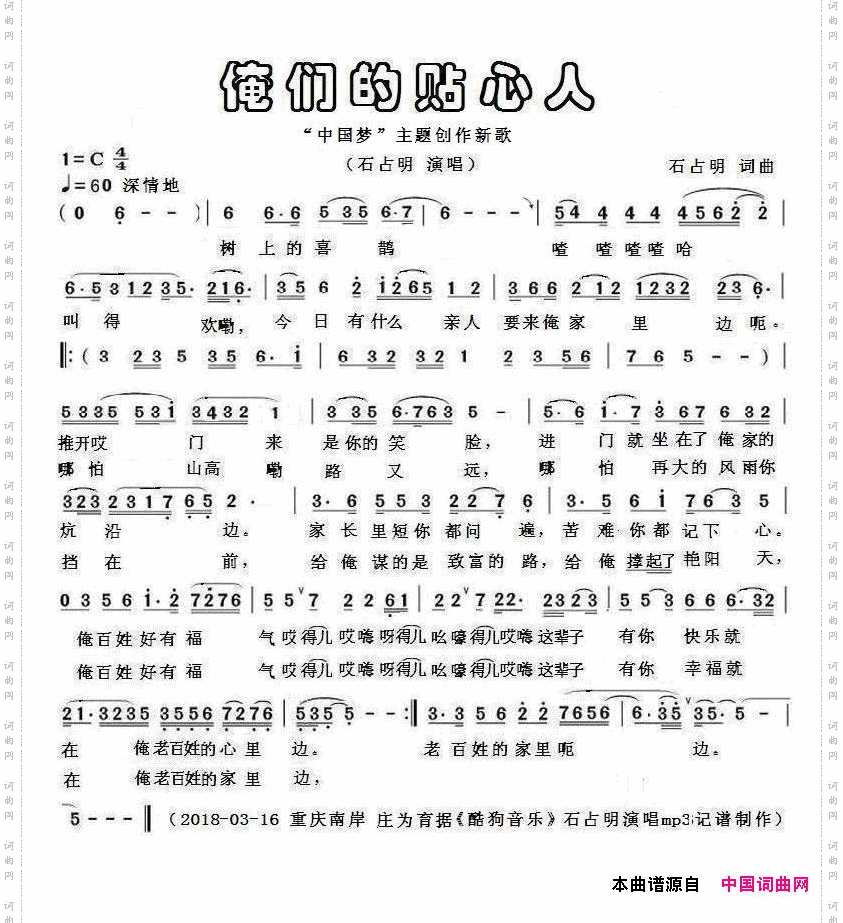 俺们的贴心人
“中国梦”主题创作新歌
1=C 4/4 （石占明 演唱） 石占明 词曲
♩=60 深情地
(0 6 - -) | 6 6·6 5 35 6·7 | 6 - - - | 54 4 4 4 4562 2 |
树 上 的 喜 鹊 喳 喳 喳 喳 哈
6·531235· 216· | 35 6 2 1265 1 2 | 3 66 212 1232 23 6· |
叫 得 欢嘞， 今 日 有 什么 亲人 要来俺家 里 边 呃。
‖:(3 23 5 35 6·1 | 6 32 32 1 2 3 56 | 7 6 5 - -) |
5335 531 3432 1 | 3 35 6·763 5 - | 5·6 1·7 3 67 6 32 |
推开哎 门 来 是你的笑 脸， 进 门就坐在了俺家的
哪怕 山高 嘞 路 又 远， 哪 怕 再大的风雨你
323 2317 65 2· | 3·6 553 227 6 | 3·5 61 76 3 5 |
炕 沿 边。 家长里短你 都问 遍，苦难·你都记下 心。
挡 在 前， 给俺谋的是 致富的路，给俺撑起了艳阳 天，
0 3 5 6 1·2 7276 | 5 5 7 2 2 61 | 2 2 7 22· 2323 | 55 3 66 6·32 |
俺百姓好有福 气哎得儿哎嗨呀得儿吆嚎得儿哎嗨这辈子 有你 快乐就
俺百姓好有福 气哎得儿哎嗨呀得儿吆嚎得儿哎嗨这辈子 有你 幸福就
21·3235 3556 7276 | 535 5· - - :‖ 3·3 56 2 2 7656 | 6·35 35·5 - |
在 俺老百姓的心里 边。 老百姓的家里呃 边。
在 俺老百姓的家里 边，
5 - - - ‖ （2018-03-16 重庆南岸 庄为育据《酷狗音乐》石占明演唱mp3记谱制作）
本曲谱源自 中国词曲网